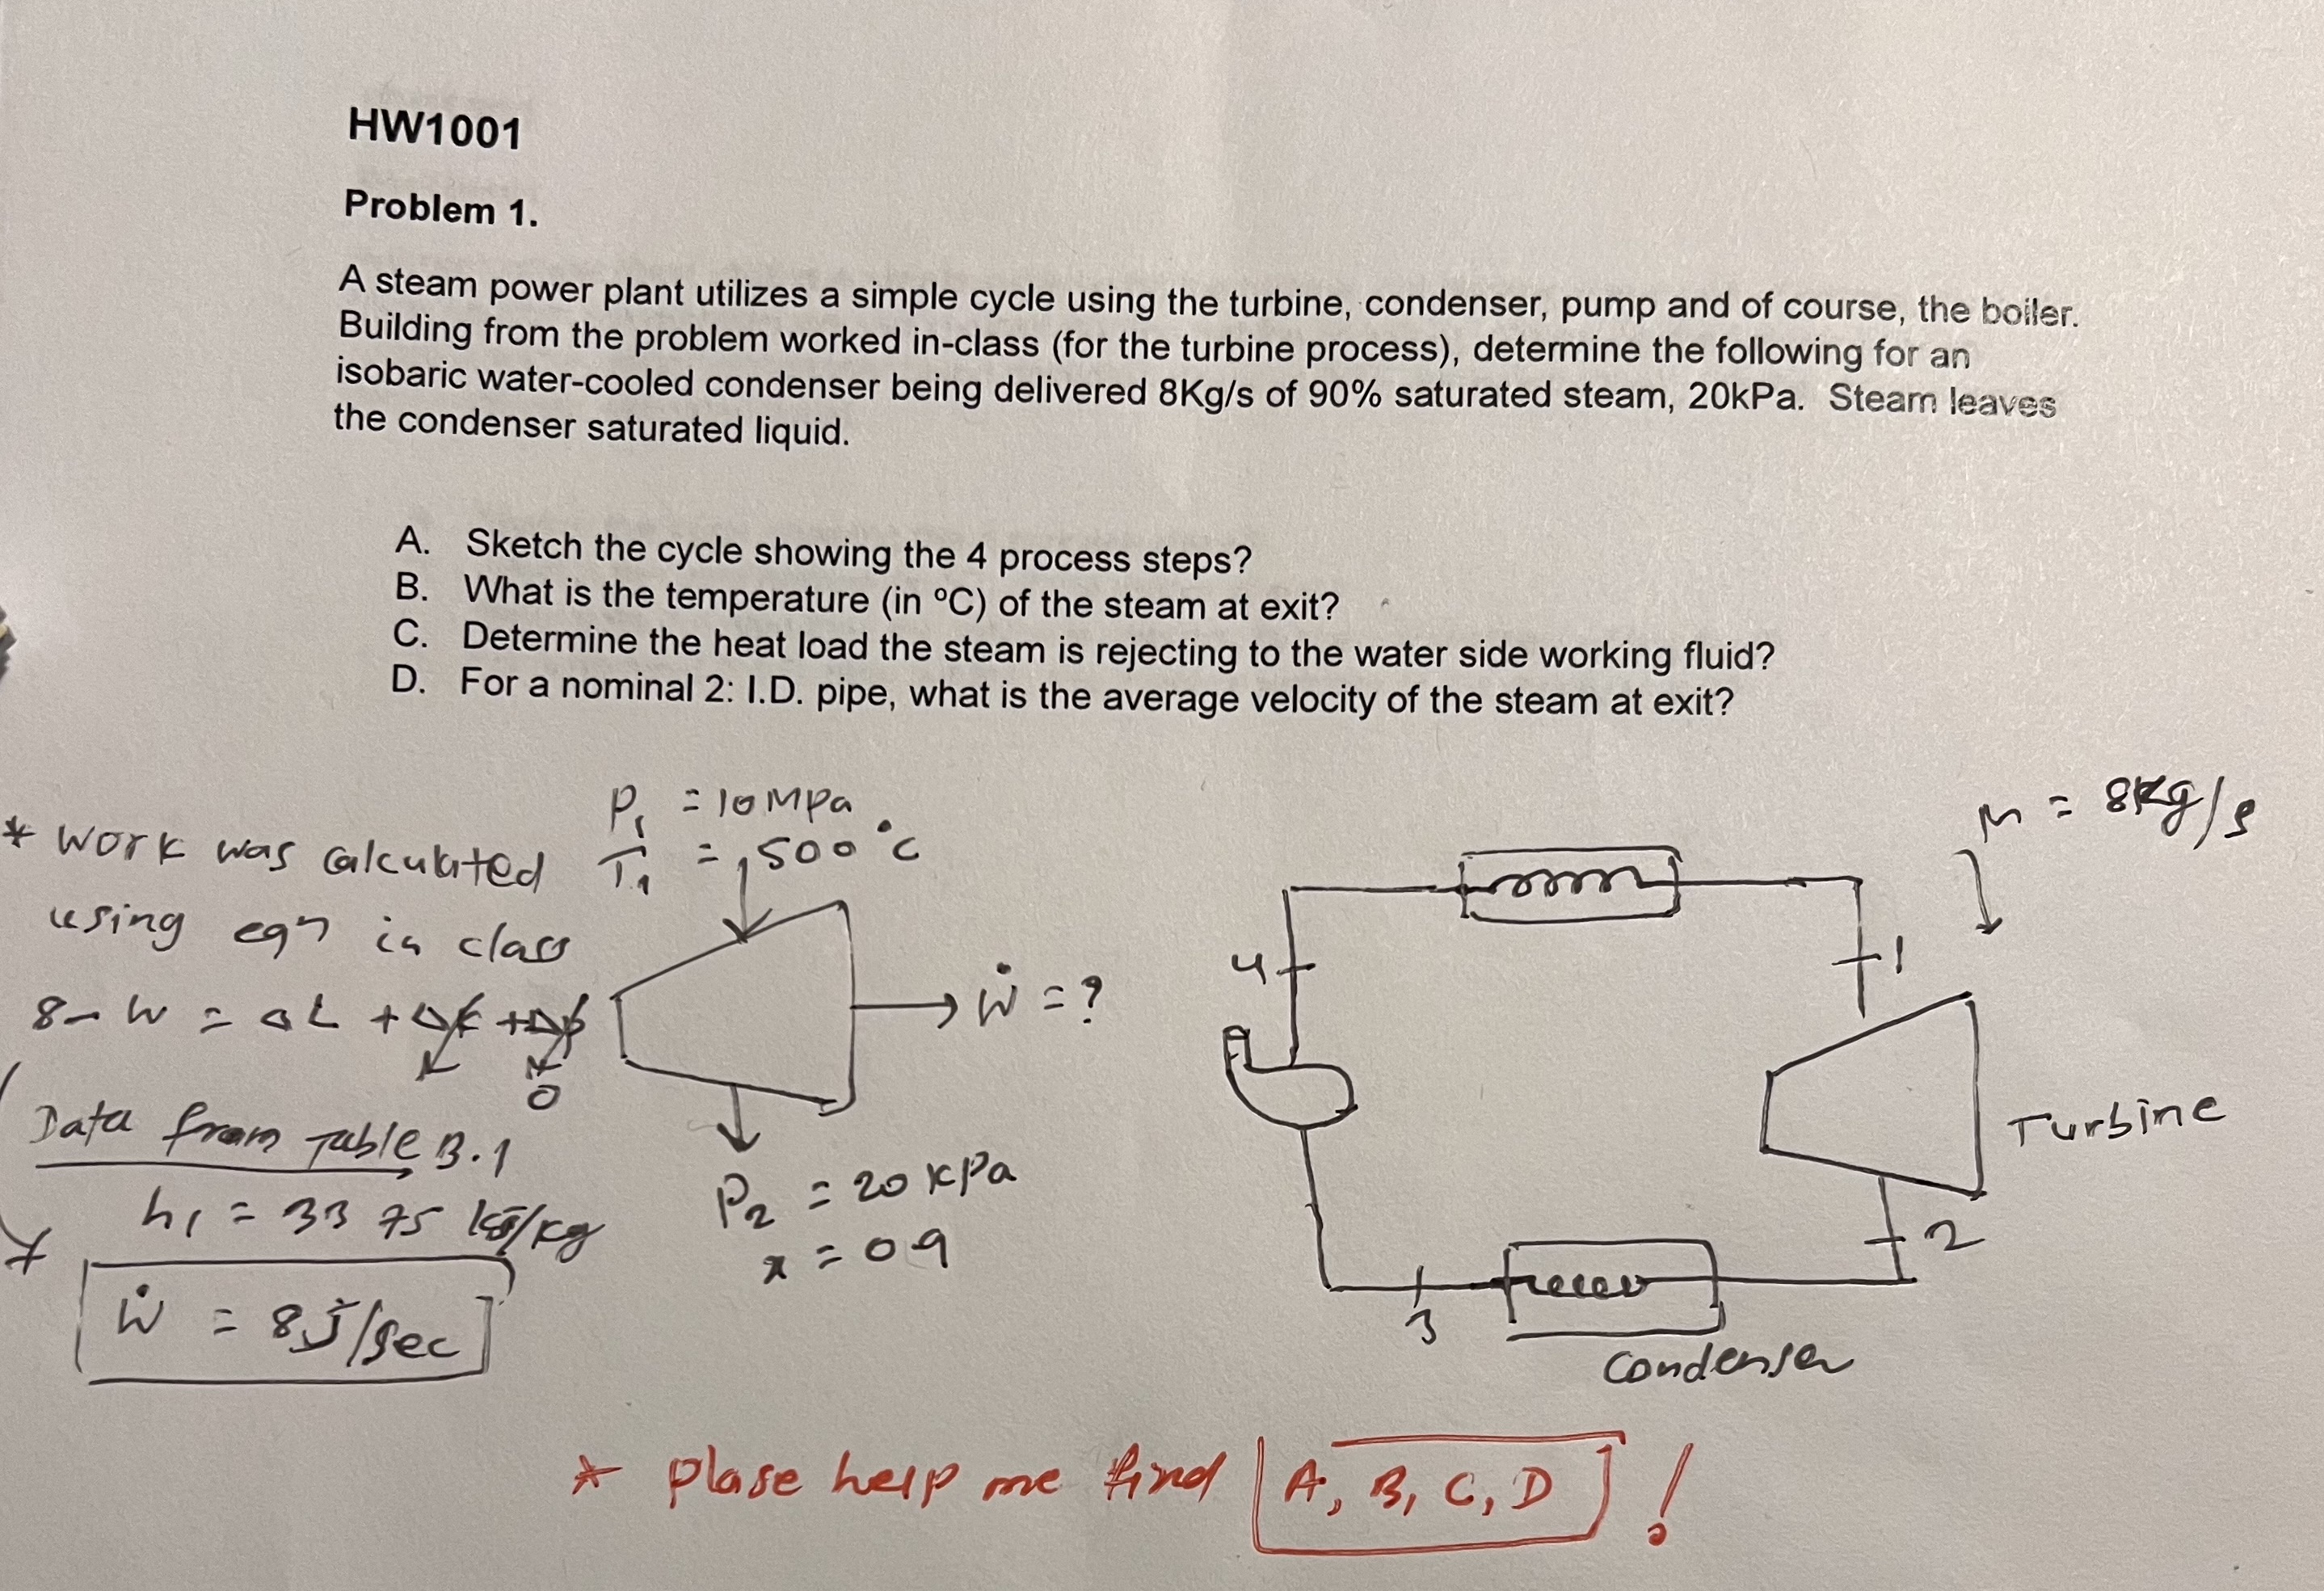 HW1001
Problem 1.
A steam power plant utilizes a simple cycle using the turbine, condenser, pump and of course, the boiler.
Building from the problem worked in-class (for the turbine process), determine the following for an
isobaric water-cooled condenser being delivered 8Kg/s of 90% saturated steam, 20kPa. Steam leaves
the condenser saturated liquid.
A. Sketch the cycle showing the 4 process steps?
B. What is the temperature (in °C) of the steam at exit?
C. Determine the heat load the steam is rejecting to the water side working fluid?
D. For a nominal 2: I.D. pipe, what is the average velocity of the steam at exit?
* Work was calculated
using eqn in class
8 - W = Δh + Δk + Δp
0
Data from Table B.1
h1 = 3375 kJ/kg
* Ẇ = 8J/sec
P1 = 10 MPa
T1 = 500°C
Ẇ = ?
P2 = 20 kPa
x = 0.9
m = 8Kg/s
4
1
Turbine
2
3
Condenser
* plase help me find A, B, C, D !